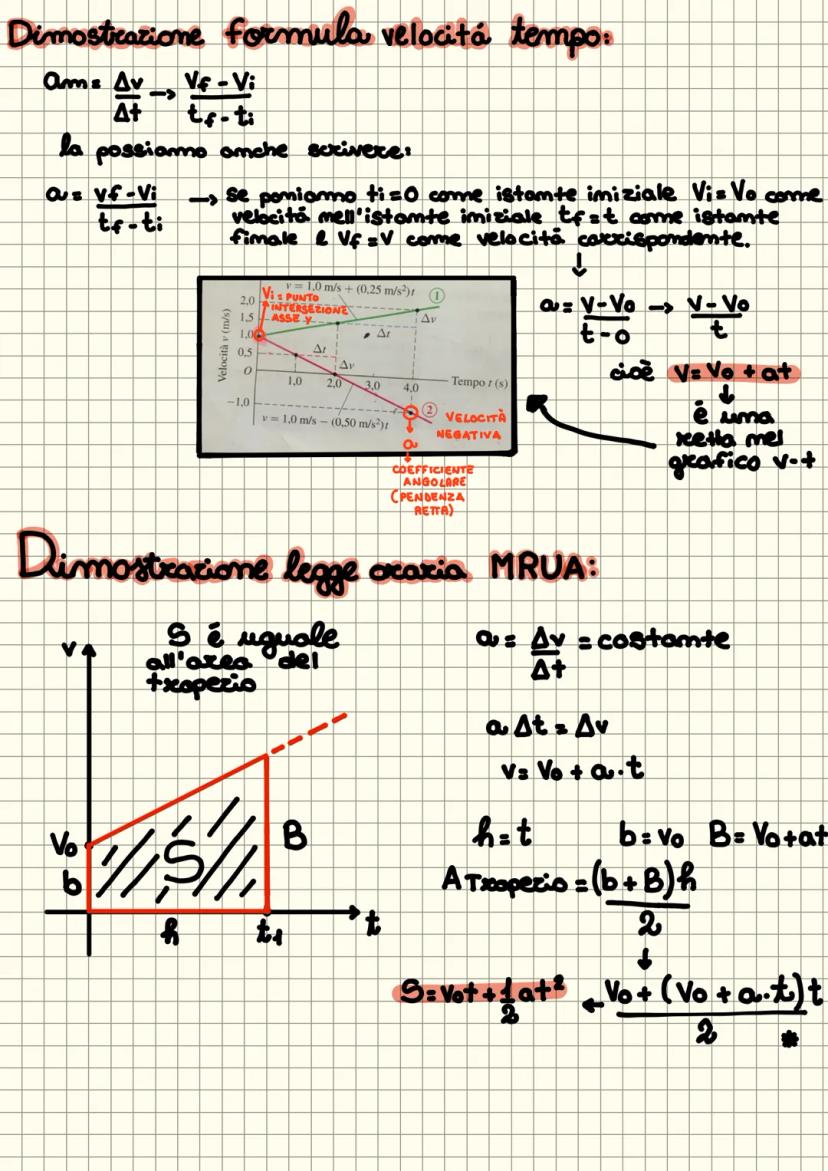 Dimostrazione formula velocitá tempo:
am = Δv/Δt → Vf - Vi / tf - ti
la possiamo anche scrivere:
a = vf - Vi / tf - ti → se poniamo ti = 0 come istante iniziale Vi = Vo come
velocitá nell'istante iniziale tf = t come istante
finale e Vf = V come velocitá corrispondente.
↓
a = V - Vo / t - 0 → V - Vo / t
cioè V = Vo + at
↓
é una
retta nel
grafico v-t
v = 1,0 m/s + (0,25 m/s²)t
Vi = PUNTO
INTERSEZIONE
ASSE Y
1
2,0
1,5
1,0
0,5
0
-1,0
Velocità v (m/s)
Δv
Δt
Δt
Δv
1,0 2,0 3,0 4,0
Tempo t (s)
v = 1,0 m/s − (0,50 m/s²)t
2
VELOCITÀ
NEGATIVA
a
COEFFICIENTE
ANGOLARE
(PENDENZA
RETTA)
Dimostrazione legge oraria MRUA:
S é uguale
all'area del
trapezio
v
Vo
b
S
B
h
t1
t
a = Δv/Δt = costante
a Δt = Δv
v = Vo + a·t
h = t b = vo B = Vo + at
A Trapezio = (b + B)h / 2
↓
Vo + (Vo + a·t)t / 2 *
← S = Vot + 1/2 at²